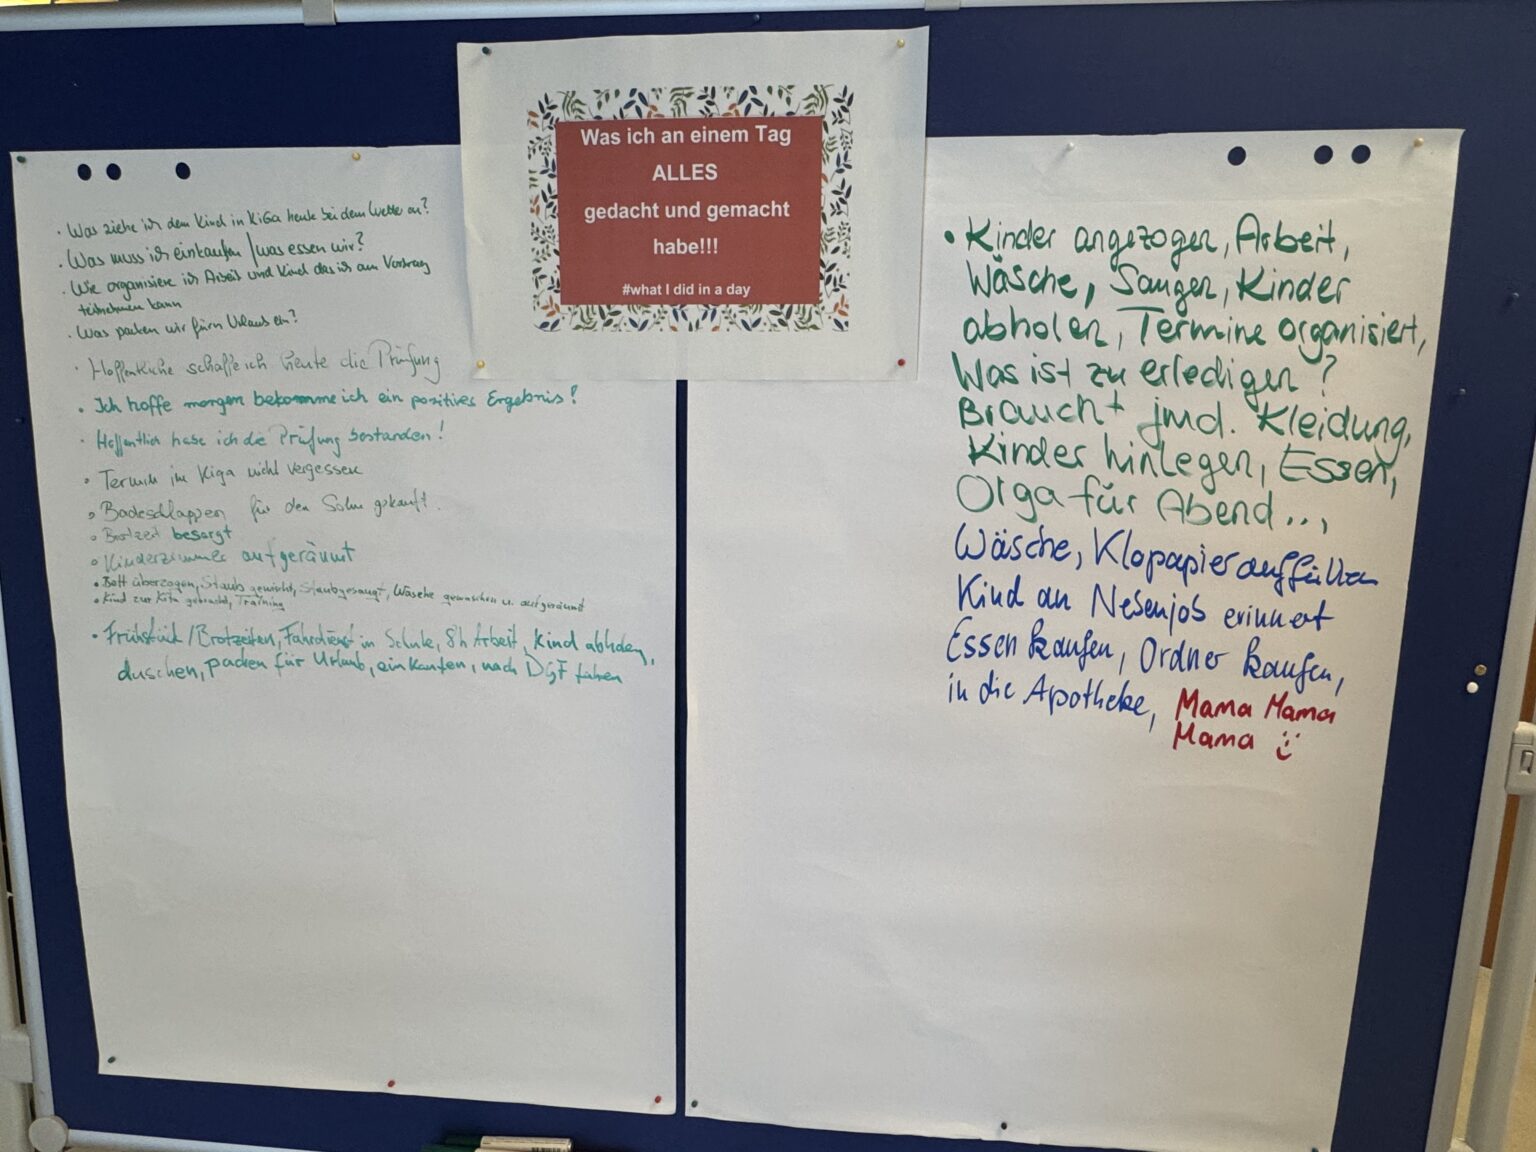 Was ich an einem Tag
ALLES
gedacht und gemacht
habe!!!
#what I did in a day
· Was ziehe ich dem Kind in KiGa heute bei dem Wetter an?
· Was muss ich einkaufen / was essen wir?
· Wie organisiere ich Arbeit und Kind das ich am Vortrag
teilnehmen kann
· Was packen wir fürn Urlaub ein?
· Hoffentliche schaffe ich heute die Prüfung
· Ich hoffe morgen bekomme ich ein positives Ergebnis!
· Hoffentlich habe ich die Prüfung bestanden!
· Termin im Kiga nicht vergessen
· Badeschlappen für den Sohn gekauft.
· Brotzeit besorgt
· Kinderzimmer aufgeräumt
· Bett überzogen, Staub gewischt, Staubgesaugt, Wäsche gewaschen u. aufgeräumt
· Kind zur Kita gebracht, Training
· Frühstück/Brotzeiten, Fahrdienst in Schule, 8h Arbeit, Kind abholen,
duschen, packen für Urlaub, einkaufen, nach DGF fahren
· Kinder angezogen, Arbeit,
Wäsche, Saugen, Kinder
abholen, Termine organisiert,
Was ist zu erledigen?
Braucht jmd. Kleidung,
Kinder hinlegen, Essen,
Orga für Abend...,
Wäsche, Klopapier auffüllen
Kind an Nebenjob erinnert
Essen kaufen, Ordner kaufen,
in die Apotheke, Mama Mama
Mama